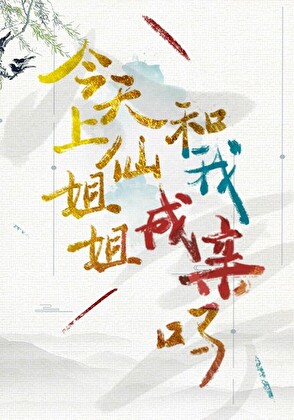 今天
上仙
姐姐
和我
成亲
吗